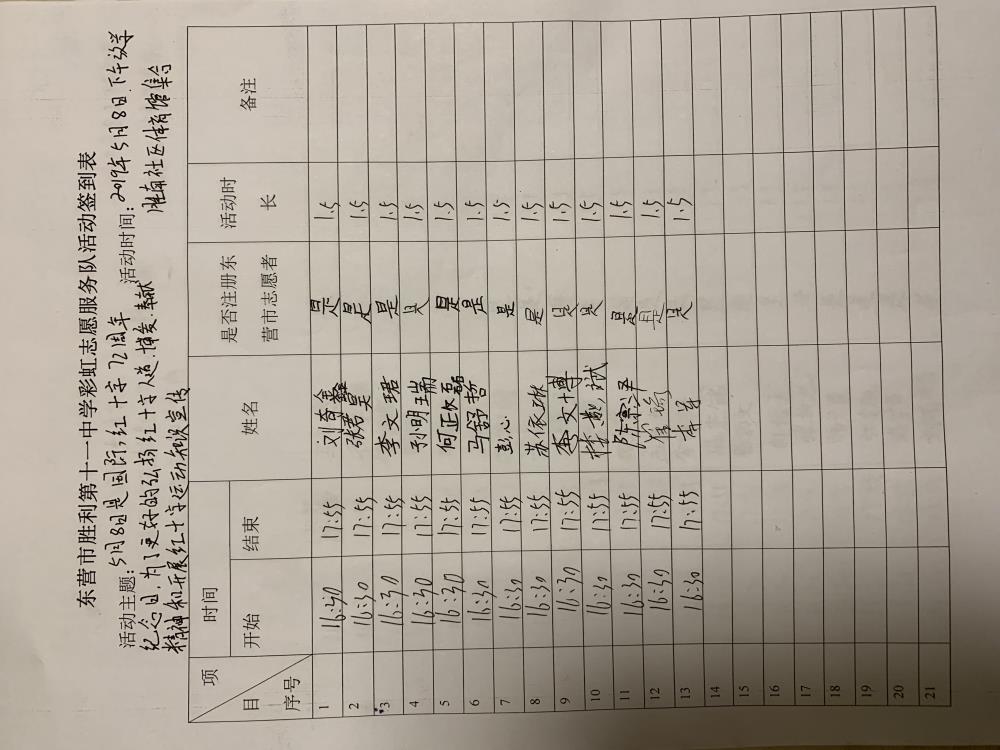 东营市胜利第十一中学彩虹志愿服务队活动签到表
活动主题：5月8日是国际红十字72周年 活动时间：2019年5月8日下午放学
纪念日,为了更好的弘扬红十字人道.博爱.奉献 胜南社区体育馆集合
精神和开展红十字运动知识宣传
项目 序号 时间 姓名 是否注册东营市志愿者 活动时长 备注
开始 结束
1 16:40 17:55 刘奋鑫 是 1.5
2 16:30 17:55 张君昊 是 1.5
3 16:30 17:55 李文珺 是 1.5
4 16:30 17:55 孙明瑞 是 1.5
5 16:30 17:55 何正磊 是 1.5
6 16:30 17:55 马舒哲 是 1.5
7 16:30 17:55 彭心 是 1.5
8 16:30 17:55 苏依琳 是 1.5
9 16:30 17:55 李文博 是 1.5
10 16:30 17:55 是 1.5
11 16:30 17:55 陈宗泽 是 1.5
12 16:30 17:55 是 1.5
13 16:30 17:55 是 1.5
14
15
16
17
18
19
20
21